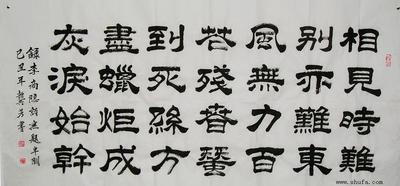 相見時難
別亦難東
風無力百
花殘春蠶
到死絲方
盡蠟炬成
灰淚始幹
錄李商隱詩無題
己丑年 書
www.shufa.com